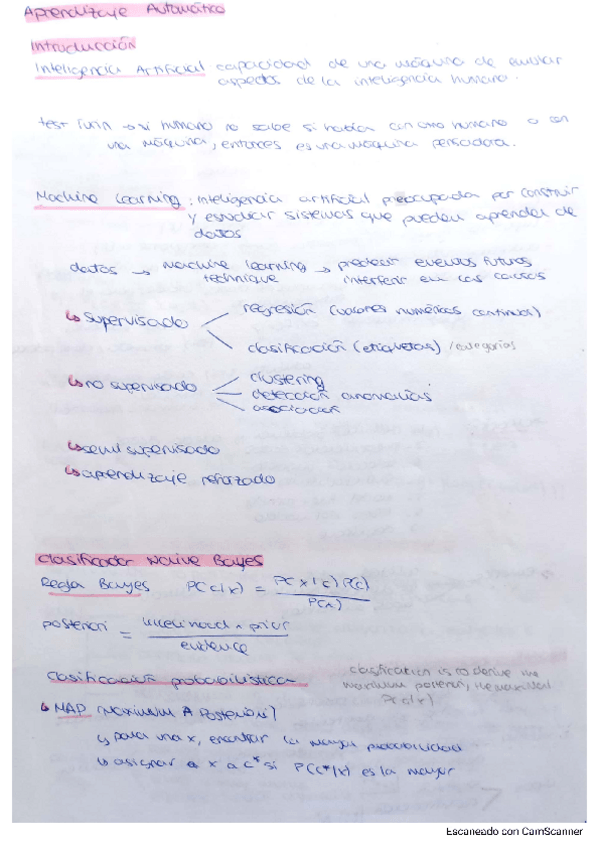 Aprendizaje Automático
Introducción
Inteligencia Artificial capacidad de una máquina de emular
aspectos de la inteligencia humana.
test Turin → si humano no sabe si habla con otro humano o con
una máquina, entonces es una máquina pensadora.
Machine Learning: inteligencia artificial preocupada por construir
y estudiar sistemas que pueden aprender de
datos
datos → machine learning technique → predecir eventos futuros
interferir en las causas
↳ supervisado
regresión (valores numéricos continuos)
clasificación (etiquetas) /categorías
↳ no supervisado
clustering
detección anomalías
asociación
↳ semisupervisado
↳ aprendizaje reforzado
Clasificador Naive Bayes
Regla Bayes P(c|x) = P(x|c) P(c) / P(x)
posteriori = likelihood * prior / evidence
Clasificación probabilística
clasification is to derive the
maximum posteriori,
P(c|x)
↳ MAP (Maximum A Posteriori)
↳ para una x, encontrar la mayor probabilidad
↳ asignar a x a c* si P(c*|x) es la mayor
Escaneado con CamScanner